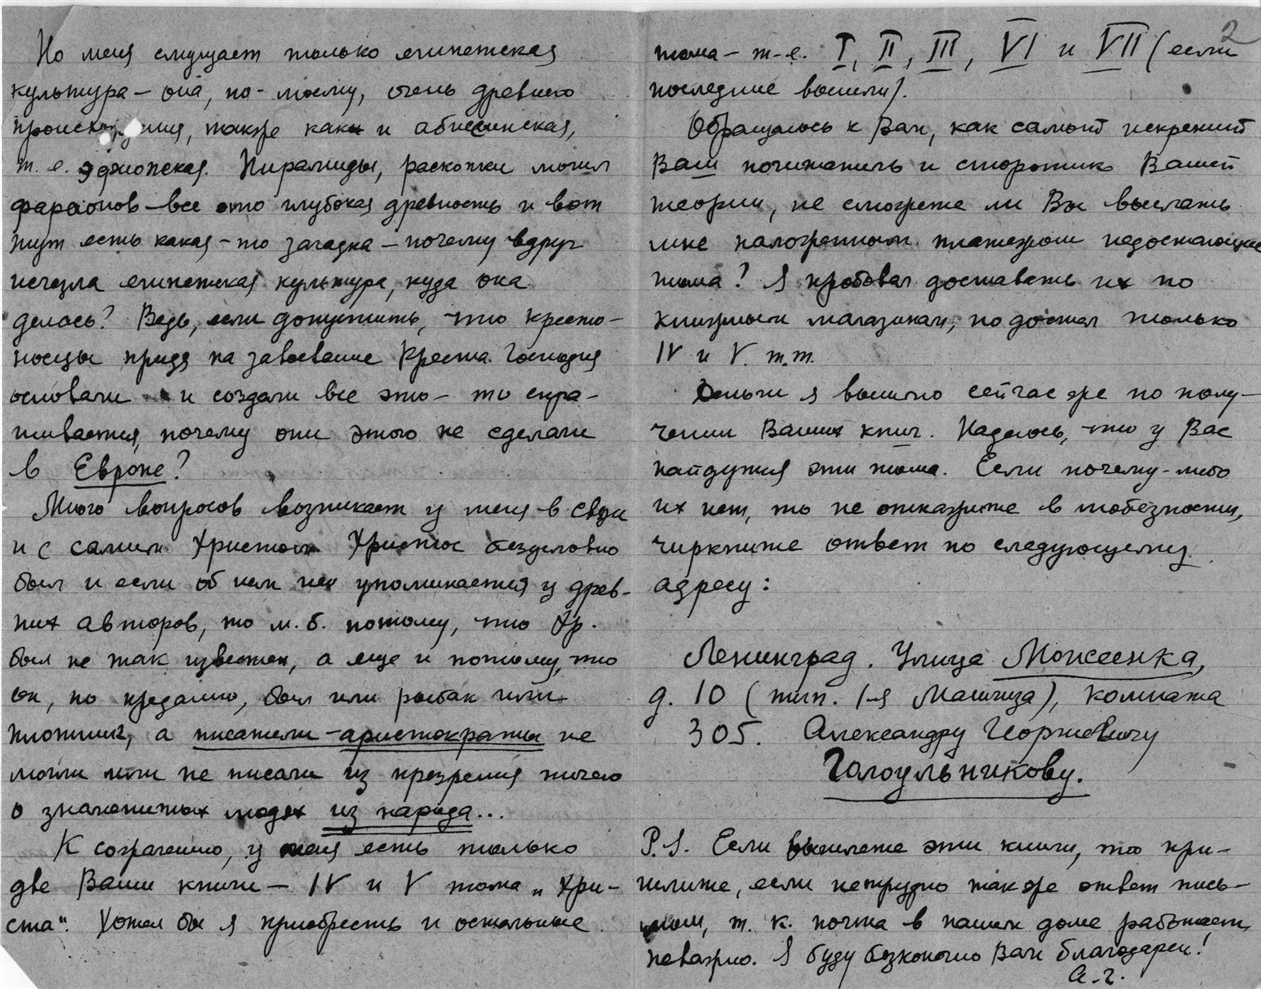 Но меня смущает только египетская
культура – она, по-моему, очень древнего
происхождения, также как и абиссинская,
т. е. эфиопская. Пирамиды, раскопки могил
фараонов – все это глубокая древность и вот
тут есть какая-то загадка – почему вдруг
исчезла египетская культура, куда она
делась? Ведь, если допустить, что кресто-
носцы придя на завоевание Креста Господня
основали и создали все это – то спра-
шивается, почему они этого не сделали
в Европе?
Много вопросов возникает у меня в связи
и с самим Христом Христос безусловно
был и если об нем не упоминается у древ-
них авторов, то м. б. потому, что Хр.
был не так известен, а еще и потому, что
он, по преданию, был или рыбак или
плотник, а писатели-аристократы не
могли или не писали из презрения ничего
о знаменитых людях из народа...
К сожалению, у меня есть только
две Ваши книги – IV и V тома „Хри-
ста“. Хотел бы я приобресть и остальные
2
тома – т-е. I, II, III, VI и VII (если
последние вышли).
Обращаюсь к Вам, как самый искренний
Ваш почитатель и сторонник Вашей
теории, не сможете ли Вы выслать
мне наложенным платежом недостающие
тома? Я пробовал доставать их по
книжным магазинам, но достал только
IV и V т.т.
Деньги я вышлю сейчас же по полу-
чении Ваших книг. Надеюсь, что у Вас
найдутся эти тома. Если почему-либо
их нет, то не откажите в любезности,
черкните ответ по следующему
адресу:
Ленинград. Улица Моисеенка,
д. 10 (тип. 1-я Машгиза), комната
305. Александру Георгиевичу
Голоульникову.
P.S. Если вышлете эти книги, то при-
шлите, если нетрудно также ответ пись-
мом, т. к. почта в нашем доме работает
неважно. Я буду безконечно Вам благодарен!
А. Г.